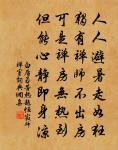 人人避暑走如狂
獨有禪師不出房
可是禪房無熱到
但能心靜即身涼
白居易苦熱題恒寂師
禪室詞典網集